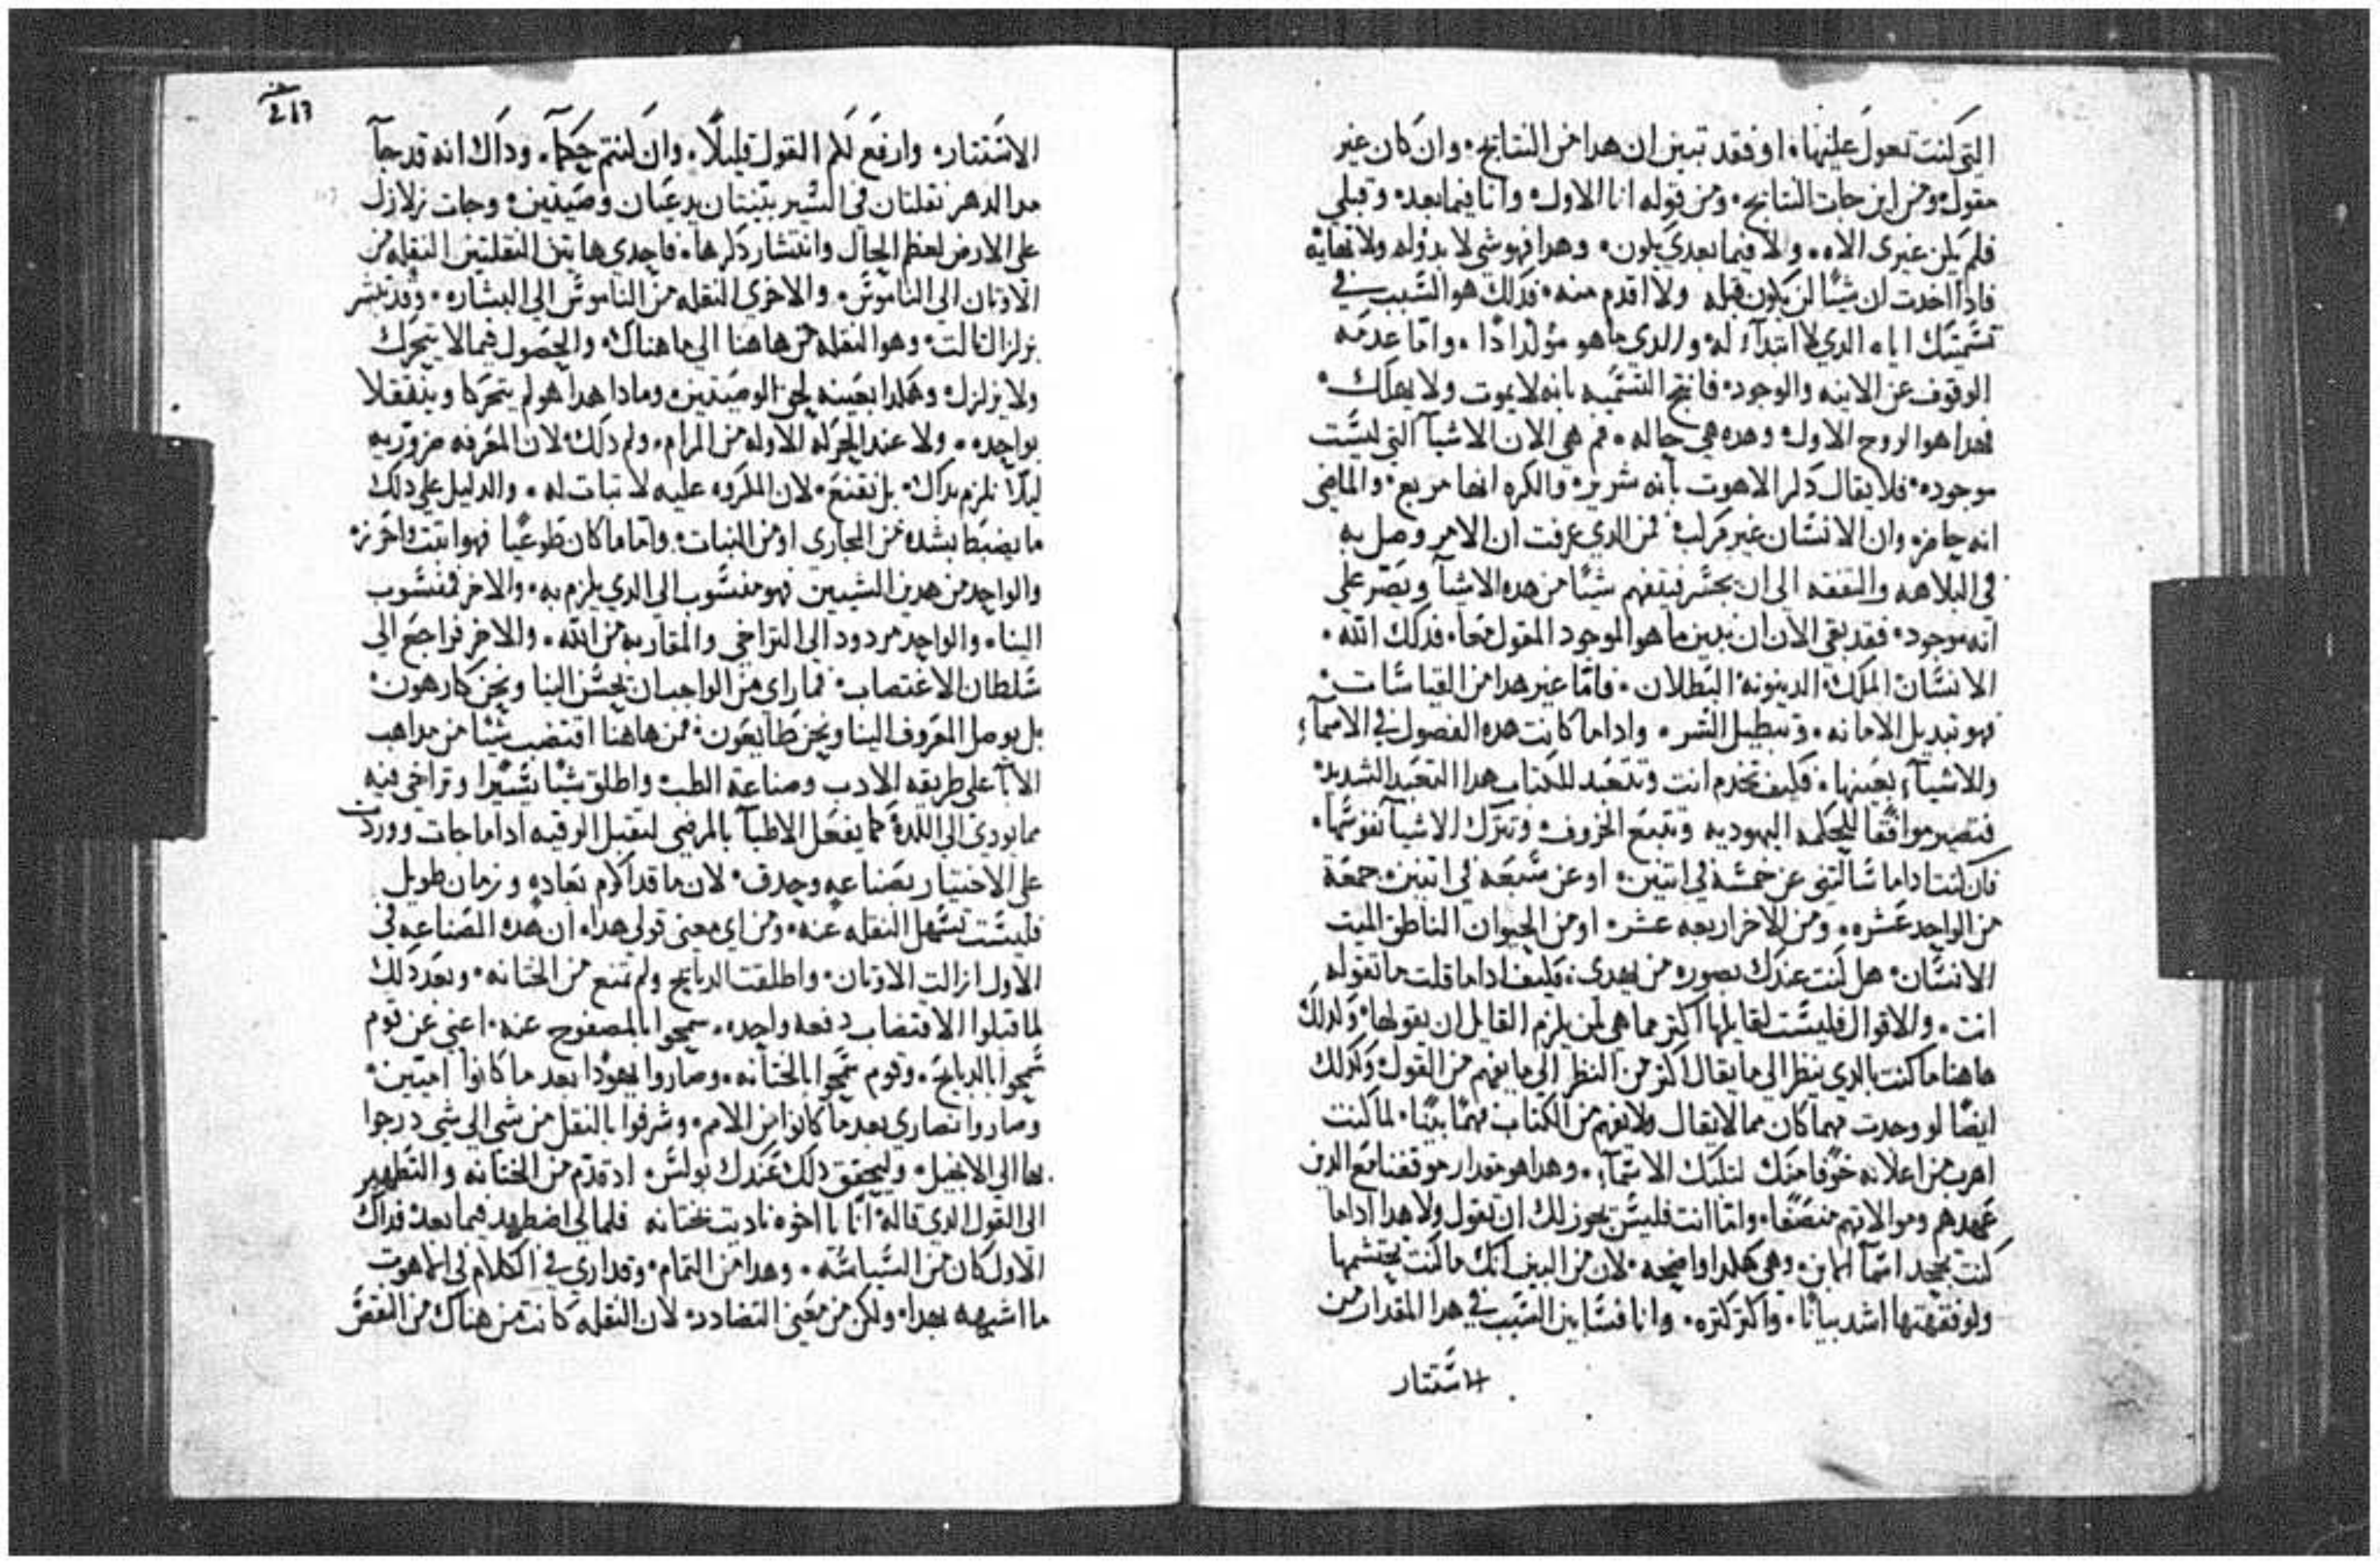 التي كنت تعول عليها، او فقد تبين ان هدا من النتايج، وان كان غير
مقول، ومن اين جات النتايج، ومن قوله انا الاول، وانا فيما بعد، وقبلي
فلم يكن غيري الاه، ولا فيما بعدي يكون، وهدا فهو شي لا بدو له ولا نهاية
فادا اخدت ان شيًا لن يكون قبله ولا اقدم منه، فدلك هو السبب في
تسميتك اياه الدي لا ابتدآء له، والدي ما هو مولدًا، واما عدمه
الوقوف عن الانيه والوجود، فانتج التسميه بانه لا يموت ولا يهلك،
فهدا هو الزوج الاول، وهده هي حاله، فم هي الان الاشيآ التي ليست
موجوده، فلا يقال دكر الاهوت بانه شرير، والكره انها مربع، والماضي
انه حاضر، وان الانسان غير مركب، فمن الدي عرفت ان الامر وصل به
في البلاهه والتفقه الى ان يجسر فيتفهم شيًا من هده الاشيآ ويصر على
انه موجود، فقد بقي الان ان نبين ما هو الموجود المقول معًا، فدلك الله،
الانسان، الملك، الدينونه، البطلان، فاما غير هدا من القياسات،
فهو تبديل الامانه، وتبطيل السر، وادا ما كانت هده الفصول في الاسمآء
والاشيآء بعينها، فكيف تخدم انت وتتعبد للكتاب هدا التعبد الشديد
فتصير موافقًا للحكمه اليهوديه وتتبع الحروف وتترك الاشيآ نفوسها،
فان كنت ادا ما سالتني عن خمسة في اتنين، او عن سبعه في اتنين، جمعة
من الواحد عشره، ومن الاخر اربعه عشر، او من الحيوان الناطق الميت
الانسان، هل كنت عندك بصوره من يهدى، فكيف ادا ما قلت ما تقوله
انت، والاقوال فليست لقايلها اكتر مما هي لمن يلزم القايل ان يقولها، ولدلك
هاهنا ما كنت بالدي ينظر الى ما يقال اكتر من النظر الى ما يفهم من القول، وكدلك
ايضًا لو وجدت مهما كان مما لا يقال ولا يفهم من الكتاب فهمًا بينًا، لما كنت
اهرب من اعلانه خوفًا منك لتلك الاسمآء، وهدا هو مقدار موقفنا مع الدين
عهدهم وموالاتهم منصفًا، واما انت فليس يجوز لك ان تقول ولا هدا ادا ما
كنت تجحد اسمآ الابن، وهي هكدا واضحه، لان من البين انك ما كنت تحتشمها
ولو فقهتها اشد بيانًا، واكتر كتره، وانا فسابين السبب في هدا المقدار من
الاستتار
2 17
الاستتار، وارفع لكم القول قليلًا، وان كنتم حكمآ، وداك انه قد جآ
مدا الدهر نقلتان في السير بتنتان يدعيان وصيتين، وجات زلازل
على الارض لعظم الحال وانتشار دكرها، فاحدى هاتين النقلتين النقله من
الاوتان الى الناموس، والاخرى النقله من الناموس الى البشاره، وقد نبشر
بزلزال تالت، وهو النقله من هاهنا الى ما هناك، والحصول فيما لا يتحرك
ولا يزلزل، وهكدا بعينه لحق الوصيتين، وما دا هدا هو لم يتحركا وينتقلا
بواحده، ولا عند الحركه الاوله من المرام، ولم دلك، لان المعرفه ضروريه
ليلا نلزم بداك، بل نقتنع، لان المكروه عليه لا تبات له، والدليل على دلك
ما يضبط بشده من المجاري او من النبات، واما ما كان طوعيًا فهو اتبت واحرز،
والواحد من هدين الشيين فهو منسوب الى الدي يلزم به، والاخر فمنسوب
الينا، والواحد مردود الى التراخي والمقاربه من الله، والاخر فراجع الى
سلطان الاغتصاب، فما راى من الواجب ان يحسن الينا ونحن كارهون،
بل يوصل المعروف الينا ونحن طايعون، فمن هاهنا اقتضب شيًا من مداهب
الابآ على طريقه الادب وصناعة الطب، واطلق شيًا يسيرًا وتراخى فيه
مما يودي الى اللدة كما يفعل الاطبآ بالمرضى لتقبل الوقيه ادا ما جات ووردت
على الاختيار بصناعه وحدق، لان ما قد اكرم بعاده وزمان طويل
فليست تسهل النقله عنه، ومن اي معنى قولي هدا، ان هده الصناعه في
الاول ازالت الاوتان، واطلقت الدبايح ولم تمنع من الختانه، وبعد دلك
لما قبلوا الاقتضاب دفعه واحده، سمحوا بالمصفوح عنه، اعني عن قوم
سمحوا بالدبايح، وقوم سمحوا بالختانه، وصاروا يهودًا بعد ما كانوا امتين،
وصاروا نصارى بعد ما كانوا من الامم، وشرفوا بالنقل من شي الى شي درجوا
بها الى الانجيل، وليحقق دلك عندك بولس، اد تقدم من الختانه والتطهير
الى القول الدي قاله، انا يا اخوه ناديت بختانه فلما لي اضطهد فيما بعد، فداك
الاول كان من السياسه، وهدا من التمام، وقد ارى في الكلام في اللاهوت
ما اشبهه بهدا، ولكن من معنى التضادد، لان النقله كانت من هناك من النقص